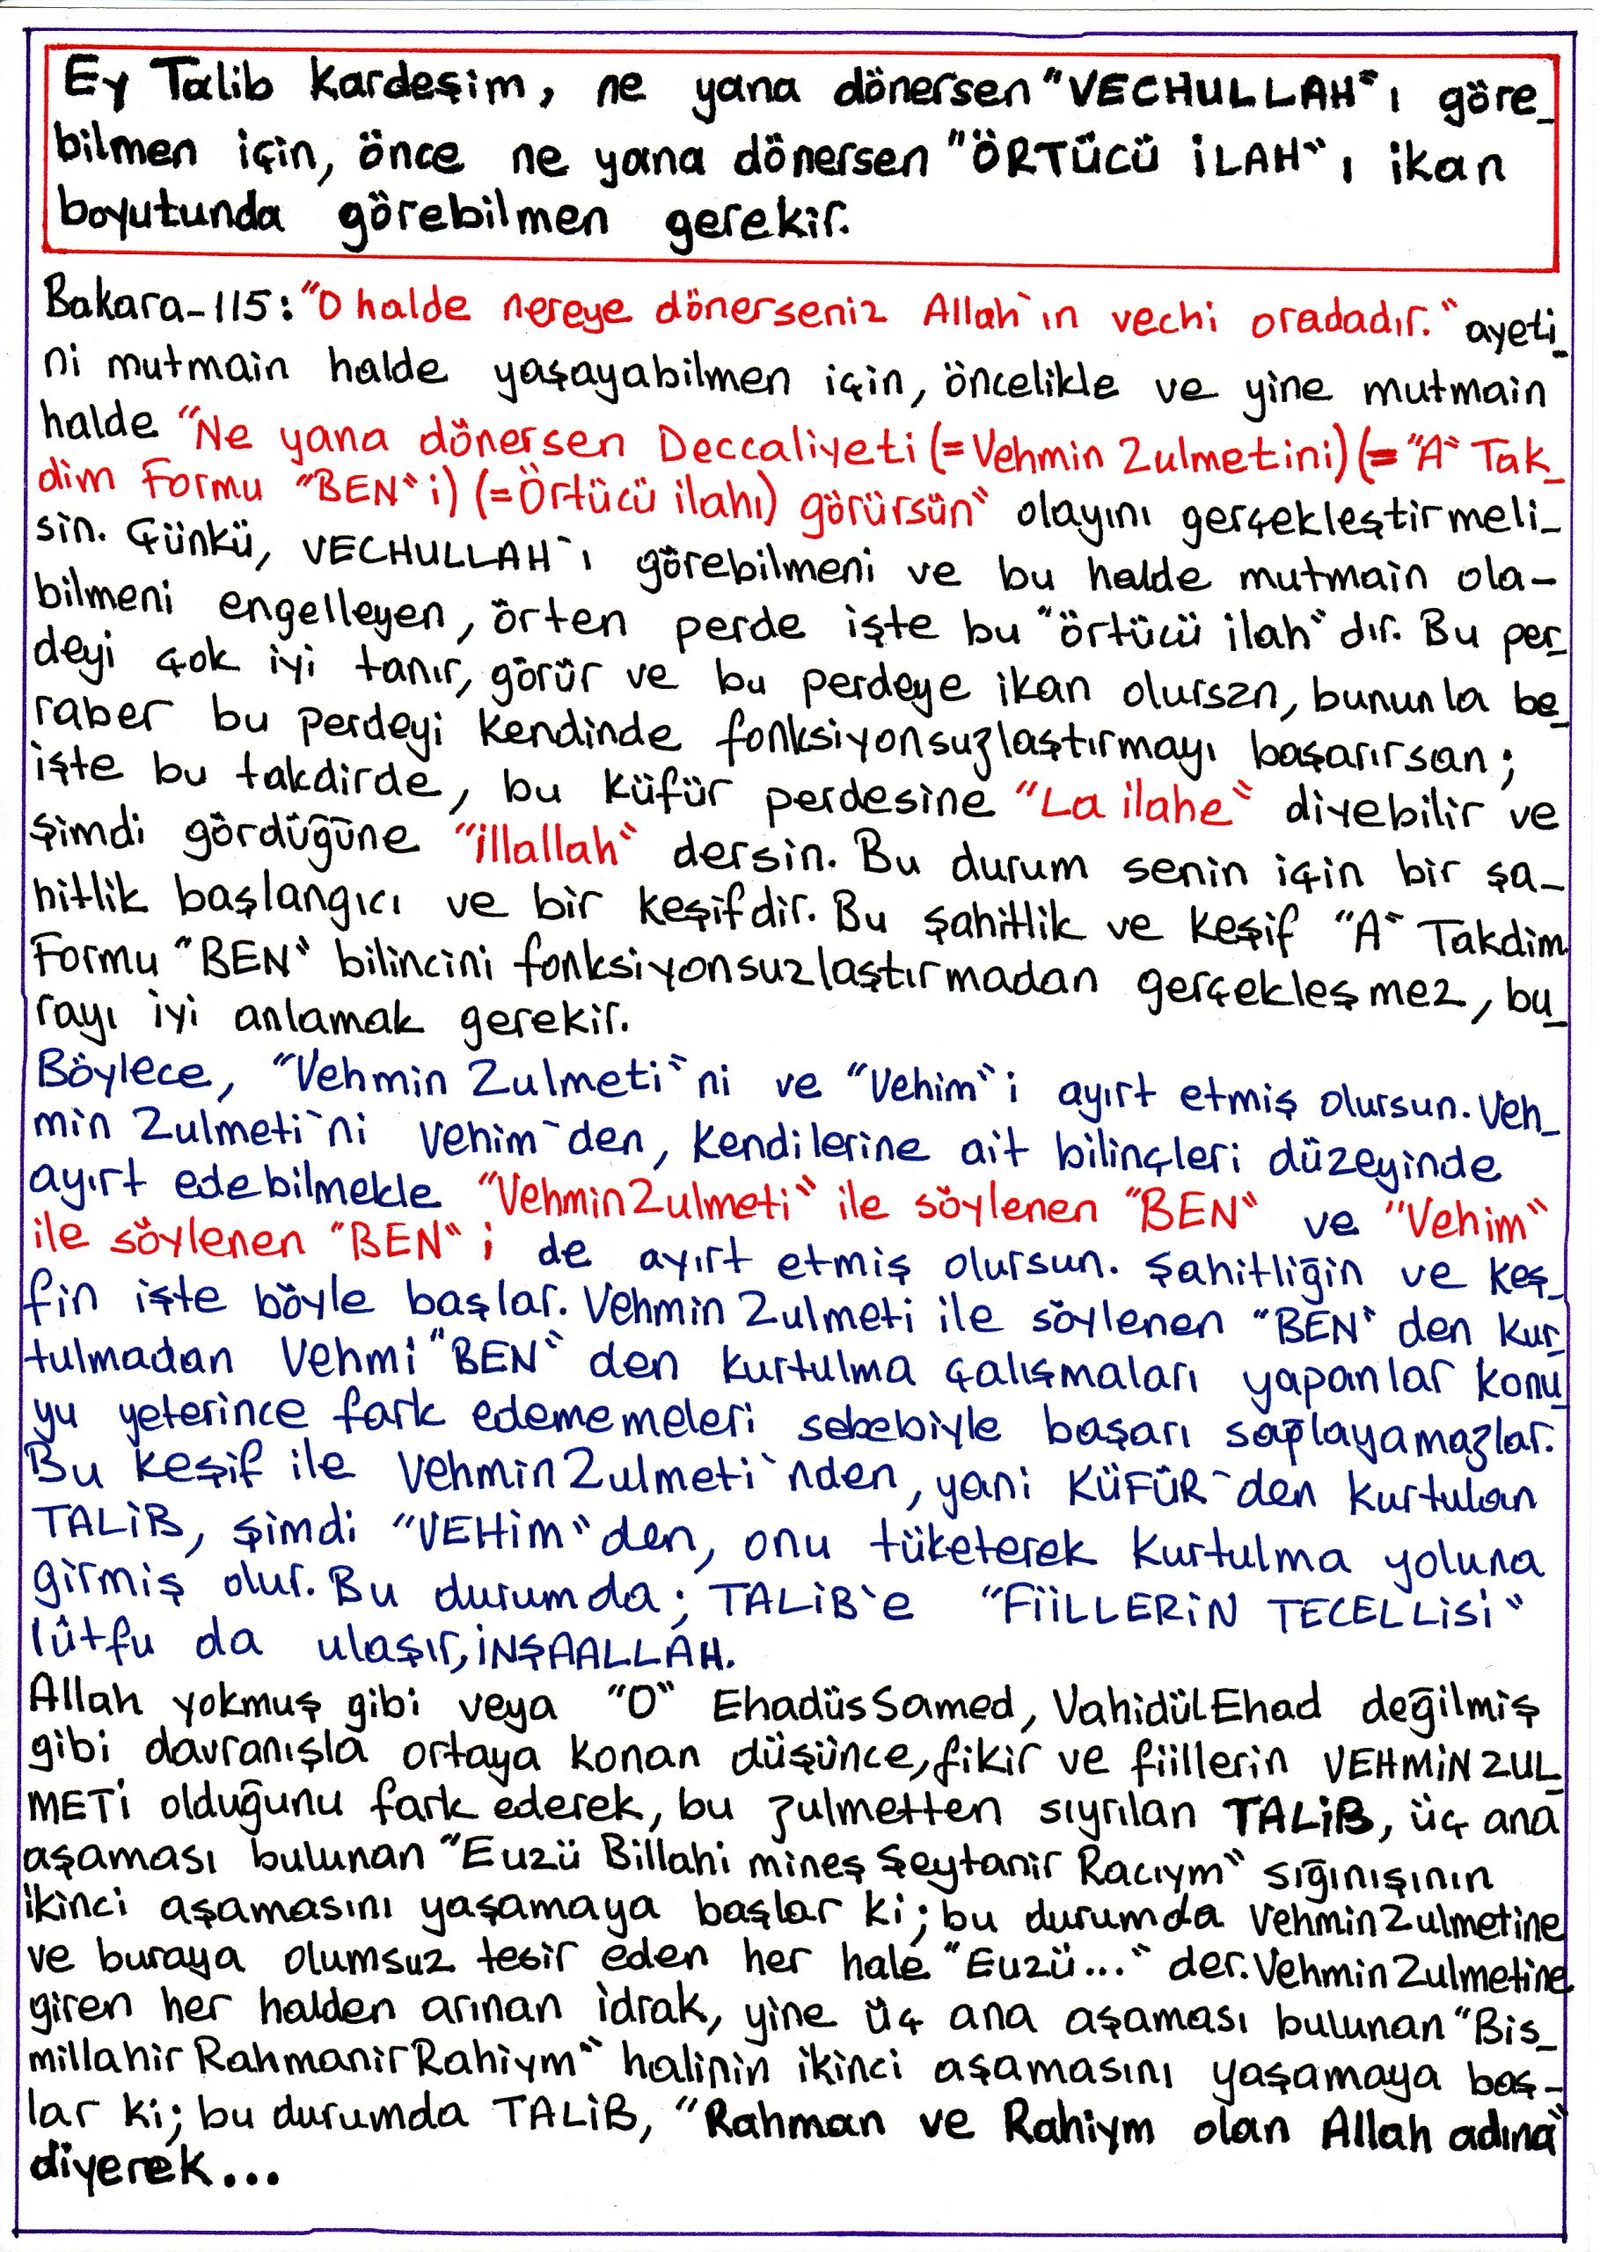 Ey Talib Kardeşim, ne yana dönersen "VECHULLAH"ı göre_
bilmen için, önce ne yana dönersen "ÖRTÜCÜ İLAH"ı ikan
boyutunda görebilmen gerekir.
Bakara-115: "O halde nereye dönerseniz Allah`ın vechi oradadır." ayeti_
ni mutmain halde yaşayabilmen için, öncelikle ve yine mutmain
halde "Ne yana dönersen Deccaliyeti (=Vehmin Zulmetini) (= "A" Tak_
dim Formu "BEN"i) (=Örtücü ilahı) görürsün" olayını gerçekleştirmeli_
sin. Çünkü, VECHULLAH`ı görebilmeni ve bu halde mutmain ola-
bilmeni engelleyen, örten perde işte bu "örtücü ilah"dır. Bu per_
deyi çok iyi tanır, görür ve bu perdeye ikan olursan, bununla be_
raber bu perdeyi kendinde fonksiyonsuzlaştırmayı başarırsan;
işte bu takdirde, bu küfür perdesine "La ilahe" diyebilir ve
şimdi gördüğüne "illallah" dersin. Bu durum senin için bir şa_
hitlik başlangıcı ve bir keşifdir. Bu şahitlik ve keşif "A" Takdim
Formu "BEN" bilincini fonksiyonsuzlaştırmadan gerçekleşmez, bu_
rayı iyi anlamak gerekir.
Böylece, "Vehmin Zulmeti"ni ve "Vehim"i ayırt etmiş olursun. Veh_
min Zulmeti`ni Vehim`den, kendilerine ait bilinçleri düzeyinde
ayırt edebilmekle "Vehmin Zulmeti" ile söylenen "BEN" ve "Vehim"
ile söylenen "BEN"i de ayırt etmiş olursun. Şahitliğin ve keş_
fin işte böyle başlar. Vehmin Zulmeti ile söylenen "BEN"den kur_
tulmadan Vehmi "BEN"den kurtulma çalışmaları yapanlar konu_
yu yeterince fark edememeleri sebebiyle başarı sağlayamazlar.
Bu keşif ile Vehmin Zulmeti`nden, yani KÜFÜR`den kurtulan
TALİB, şimdi "VEHİM"den, onu tüketerek kurtulma yoluna
girmiş olur. Bu durumda; TALİB`e "FİİLLERİN TECELLİSİ"
lûtfu da ulaşır, İNŞAALLÂH.
Allah yokmuş gibi veya "O" EhadüsSamed, VahidülEhad değilmiş
gibi davranışla ortaya konan düşünce, fikir ve fiillerin VEHMİN ZUL_
METİ olduğunu fark ederek, bu zulmetten sıyrılan TALİB, üç ana
aşaması bulunan "Euzü Billahi mineş Şeytanir Racıym" sığınışının
ikinci aşamasını yaşamaya başlar ki; bu durumda Vehmin Zulmetine
ve buraya olumsuz tesir eden her hale "Euzü..." der. Vehmin Zulmetine
giren her halden arınan idrak, yine üç ana aşaması bulunan "Bis_
millahir Rahmanir Rahiym" halinin ikinci aşamasını yaşamaya baş-
lar ki; bu durumda TALİB, "Rahman ve Rahiym olan Allah adına"
diyerek...